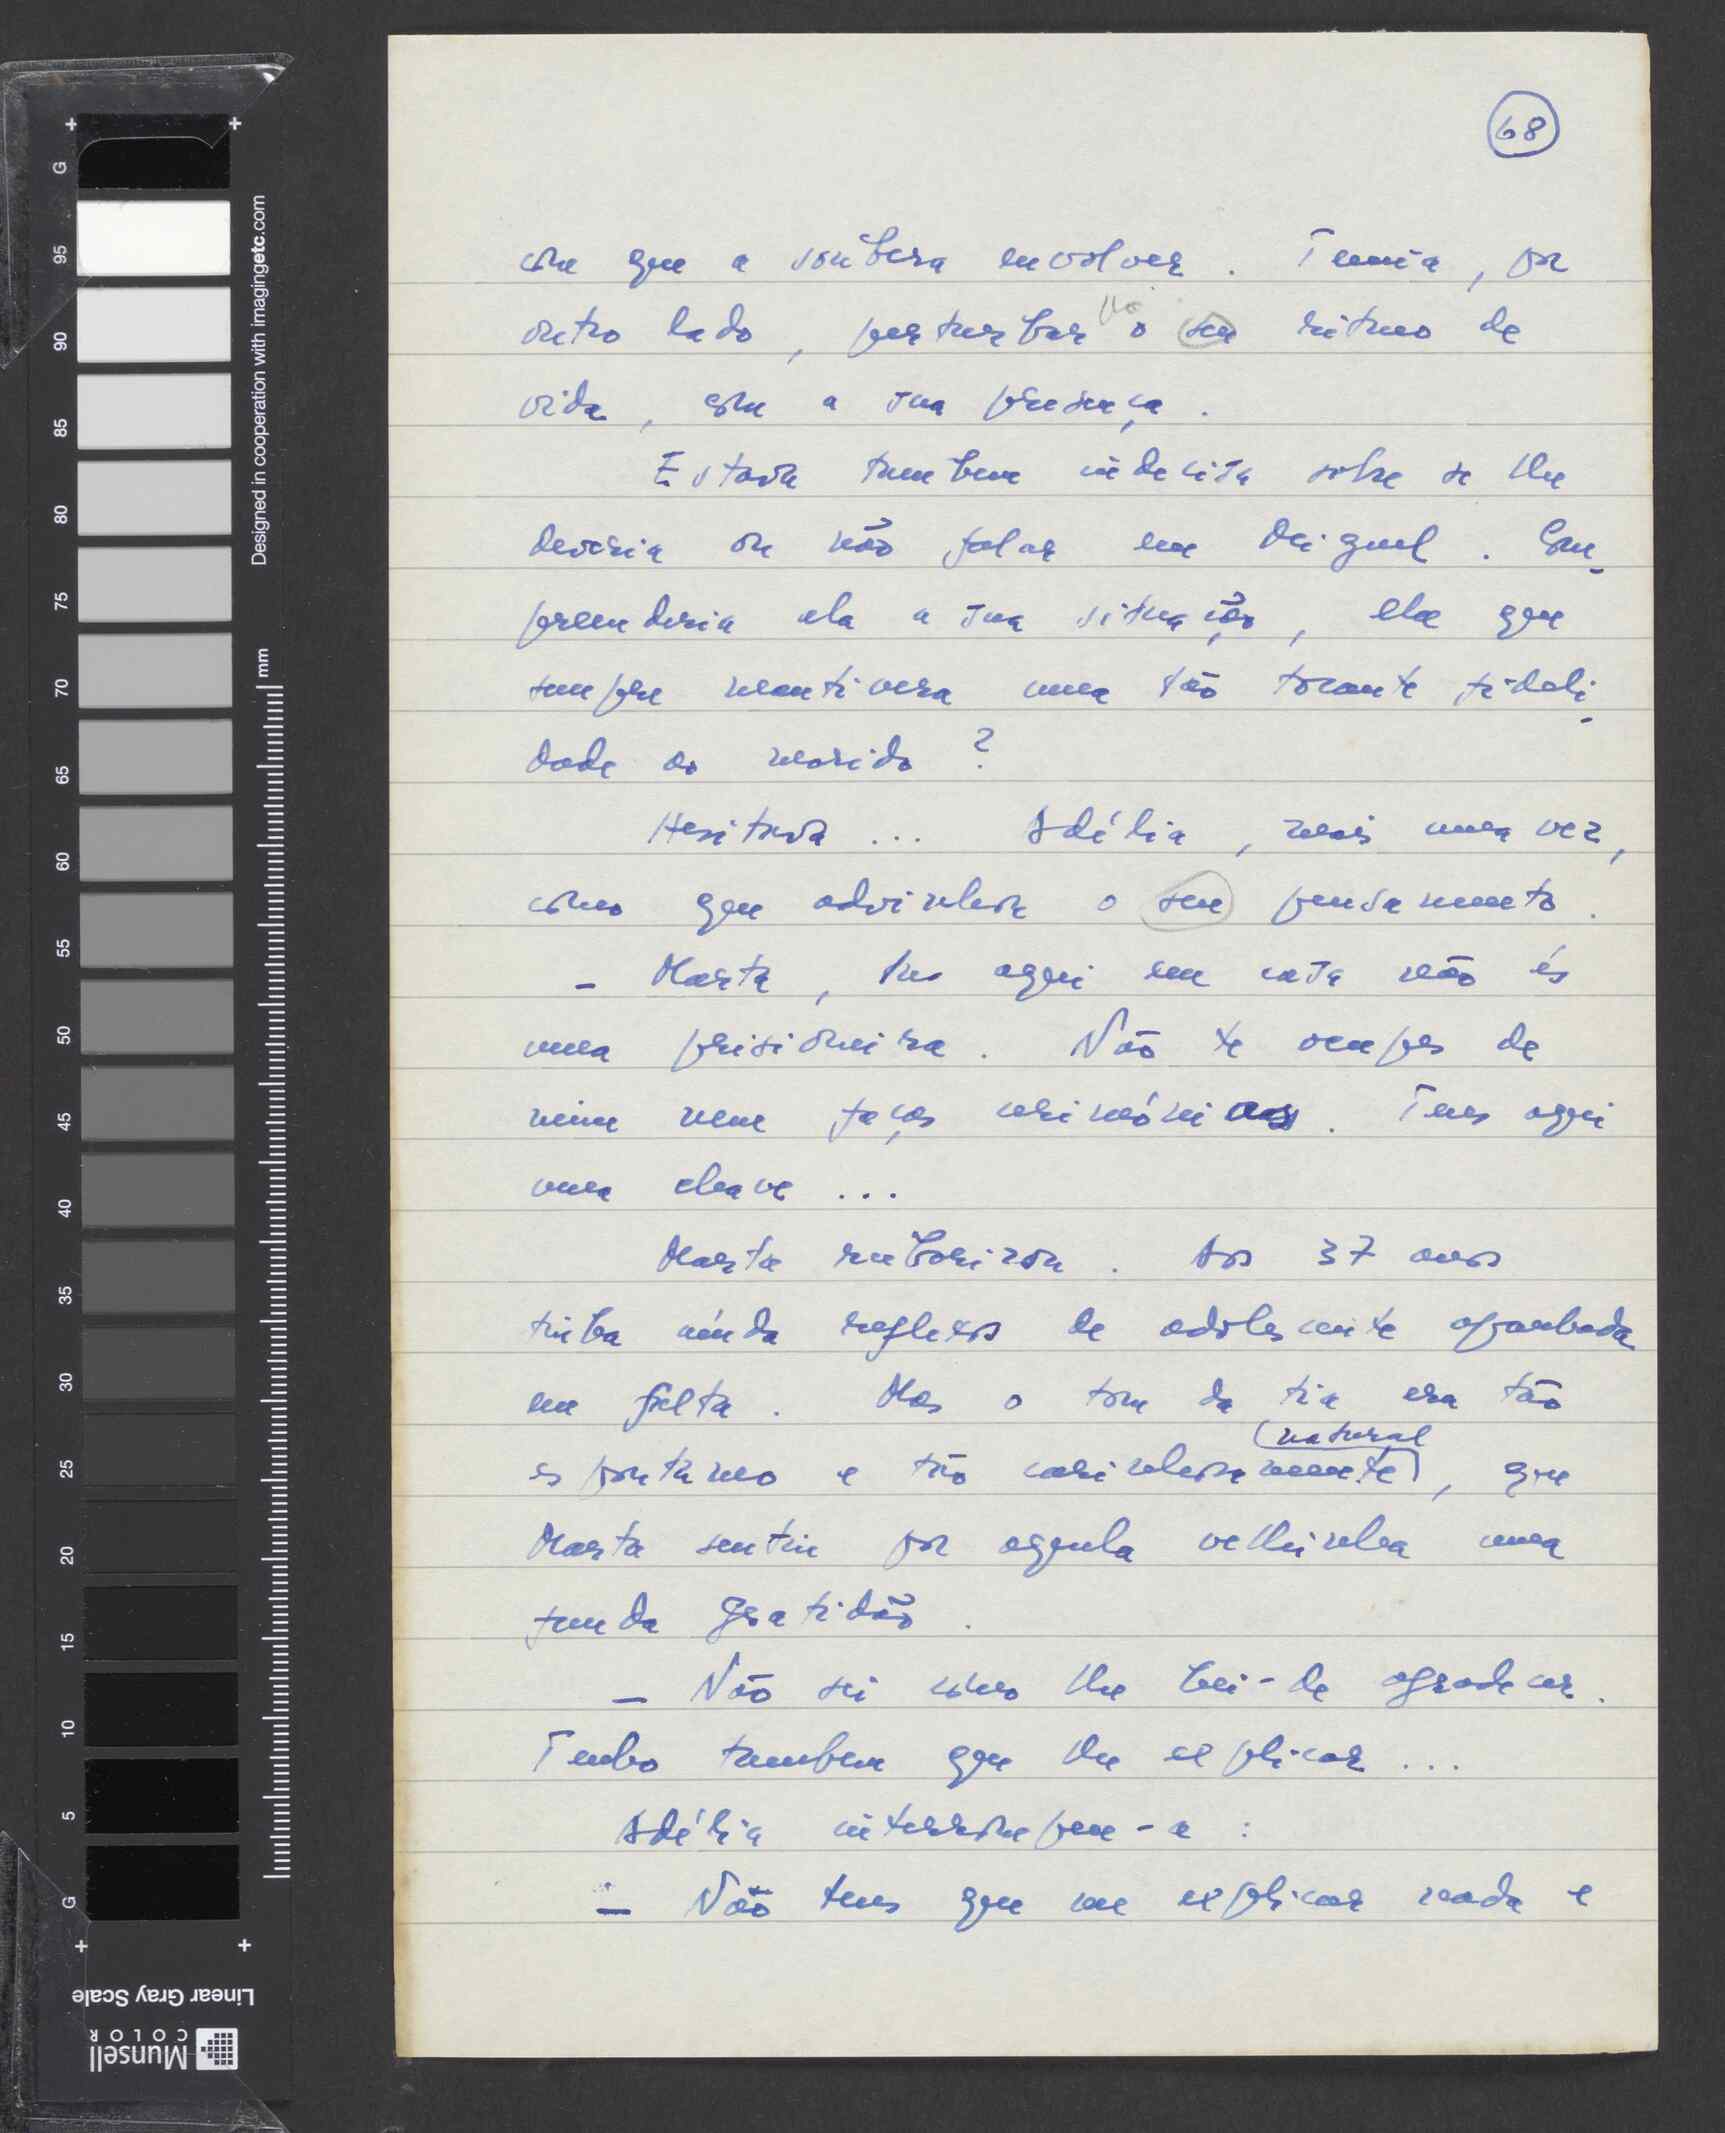 68
com que a soubera envolver. Temia, por
outro lado, perturbar-lhe o seu ritmo de
vida, com a sua presença.
Estava tambem indecisa sobre se lhe
deveria ou não falar em Miguel. Com-
preenderia ela a sua situação, ela que
sempre mantivera uma tão tocante fideli-
dade ao marido?
Hesitava... Adélia, mais uma vez,
como que advinhou o seu pensamento.
- Marta, tu aqui em casa não és
uma prisioneira. Não te ocupes de
mim nem faças cerimónias. Tens aqui
uma chave...
Marta ruborizou. Aos 37 anos
tinha ainda reflexos de adolescente apanhada
em falta. Mas o tom da tia era tão
natural
espontaneo e tão carinhosamente, que
Marta sentiu por aquela velhinha uma
funda gratidão.
- Não sei como lhe hei-de agradecer.
Tenho tambem que lhe explicar...
Adélia interrompeu-a:
- Não tens que me explicar nada e
G 95 90 85 80 75 70 65 60 55 50 45 40 35 30 25 20 15 10 5 G
Designed in cooperation with imagingetc.com
mm
Linear Gray Scale
Munsell
COLOR